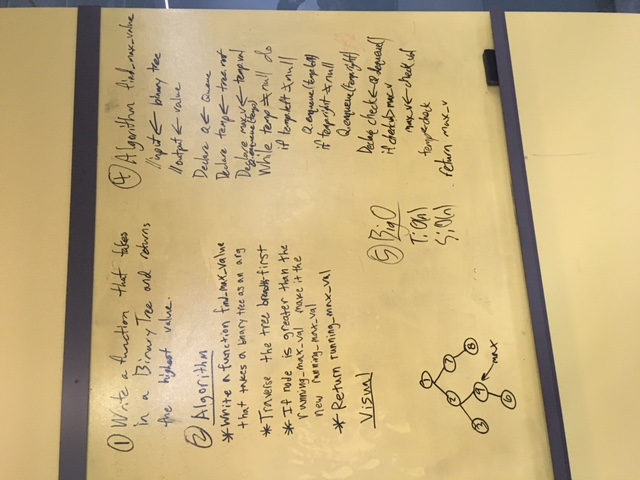 ① Write a function that takes
in a Binary Tree and returns
the highest value.
② Algorithm
* Write a function find_max_value
that takes a binary tree as an arg
* Traverse the tree breadth first
* If node is greater than the
running_max_val make it the
new running_max_val
* Return running_max_val
Visual
1
2 7
3 9 8
max
6
④ Algorithm find_max_value
//input ← binary tree
//output ← value
Declare Q ← Queue
Declare temp ← tree.root
Declare max_v ← temp.val
Q.enqueue(temp)
While temp ≠ null do
if temp.left ≠ null
Q.enqueue(temp.left)
if temp.right ≠ null
Q.enqueue(temp.right)
Declare check ← Q.dequeue()
if check.val > max_v
max_v ← check.val
temp ← check
return max_v
⑤ Big O
T: O(n)
S: O(n)